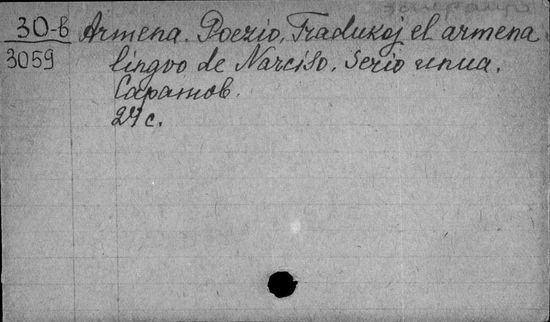 эсперанто
30-в Armena Poezio, Tradukoj el armena
3059 lingvo de Narciso. Serio unua.
Саратов.
24 с.